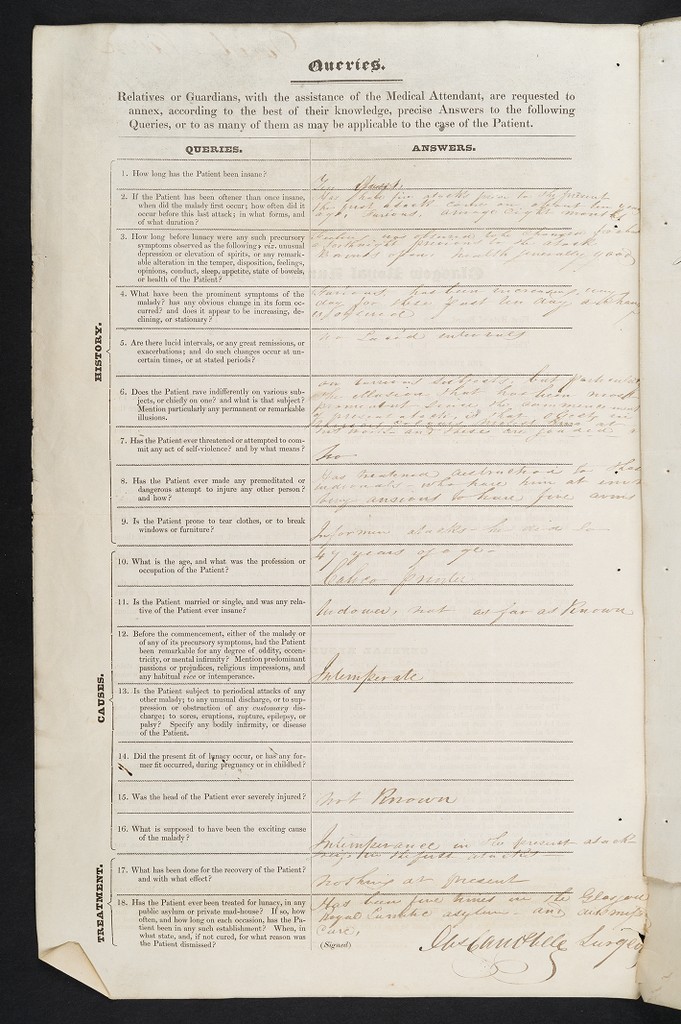 Queries.
Relatives or Guardians, with the assistance of the Medical Attendant, are requested to
annex, according to the best of their knowledge, precise Answers to the following
Queries, or to as many of them as may be applicable to the case of the Patient.
QUERIES.
ANSWERS.
HISTORY.
1. How long has the Patient been insane?
Ten days
2. If the Patient has been oftener than once insane,
when did the malady first occur; how often did it
occur before this last attack; in what forms, and
of what duration?
five attacks prior to the present
the first attack came on about ten years
ago, furious. average eight months
3. How long before lunacy were any such precursory
symptoms observed as the following; viz. unusual
depression or elevation of spirits, or any remark-
able alteration in the temper, disposition, feelings,
opinions, conduct, sleep, appetite, state of bowels,
or health of the Patient?
to be changed for about
a fortnight previous to the attack
Bowels open. health generally good
4. What have been the prominent symptoms of the
malady? has any obvious change in its form oc-
curred? and does it appear to be increasing, de-
clining, or stationary?
Furious, has been increasing every
day for these past ten days
5. Are there lucid intervals, or any great remissions, or
exacerbations; and do such changes occur at un-
certain times, or at stated periods?
no Lucid intervals
6. Does the Patient rave indifferently on various sub-
jects, or chiefly on one? and what is that subject?
Mention particularly any permanent or remarkable
illusions.
on various subjects, but particularly
the illusion that has been most
prominent since the commencement
of present attack, is that
7. Has the Patient ever threatened or attempted to com-
mit any act of self-violence? and by what means?
No
8. Has the Patient ever made any premeditated or
dangerous attempt to injure any other person?
and how?
Has threatened destruction to those
individuals who have him at
being anxious to have fire arms
9. Is the Patient prone to tear clothes, or to break
windows or furniture?
In former attacks he did so
CAUSES.
10. What is the age, and what was the profession or
occupation of the Patient?
47 years of age
Calico printer
11. Is the Patient married or single, and was any rela-
tive of the Patient ever insane?
Widower, not as far as Known
12. Before the commencement, either of the malady or
of any of its precursory symptoms, had the Patient
been remarkable for any degree of oddity, eccen-
tricity, or mental infirmity? Mention predominant
passions or prejudices, religious impressions, and
any habitual vice or intemperance.
Intemperate
13. Is the Patient subject to periodical attacks of any
other malady; to any unusual discharge, or to sup-
pression or obstruction of any customary dis-
charge; to sores, eruptions, rupture, epilepsy, or
palsy? Specify any bodily infirmity, or disease
of the Patient.
14. Did the present fit of lunacy occur, or has any for-
mer fit occurred, during pregnancy or in childbed?
15. Was the head of the Patient ever severely injured?
Not Known
16. What is supposed to have been the exciting cause
of the malady?
Intemperance in the present attack
TREATMENT.
17. What has been done for the recovery of the Patient?
and with what effect?
Nothing at present
18. Has the Patient ever been treated for lunacy, in any
public asylum or private mad-house? If so, how
often, and how long on each occasion, has the Pa-
tient been in any such establishment? When, in
what state, and, if not cured, for what reason was
the Patient dismissed?
Has been five times in the Glasgow
Royal Lunatic asylum and dismissed
cured,
(Signed)
Campbell Surgeon